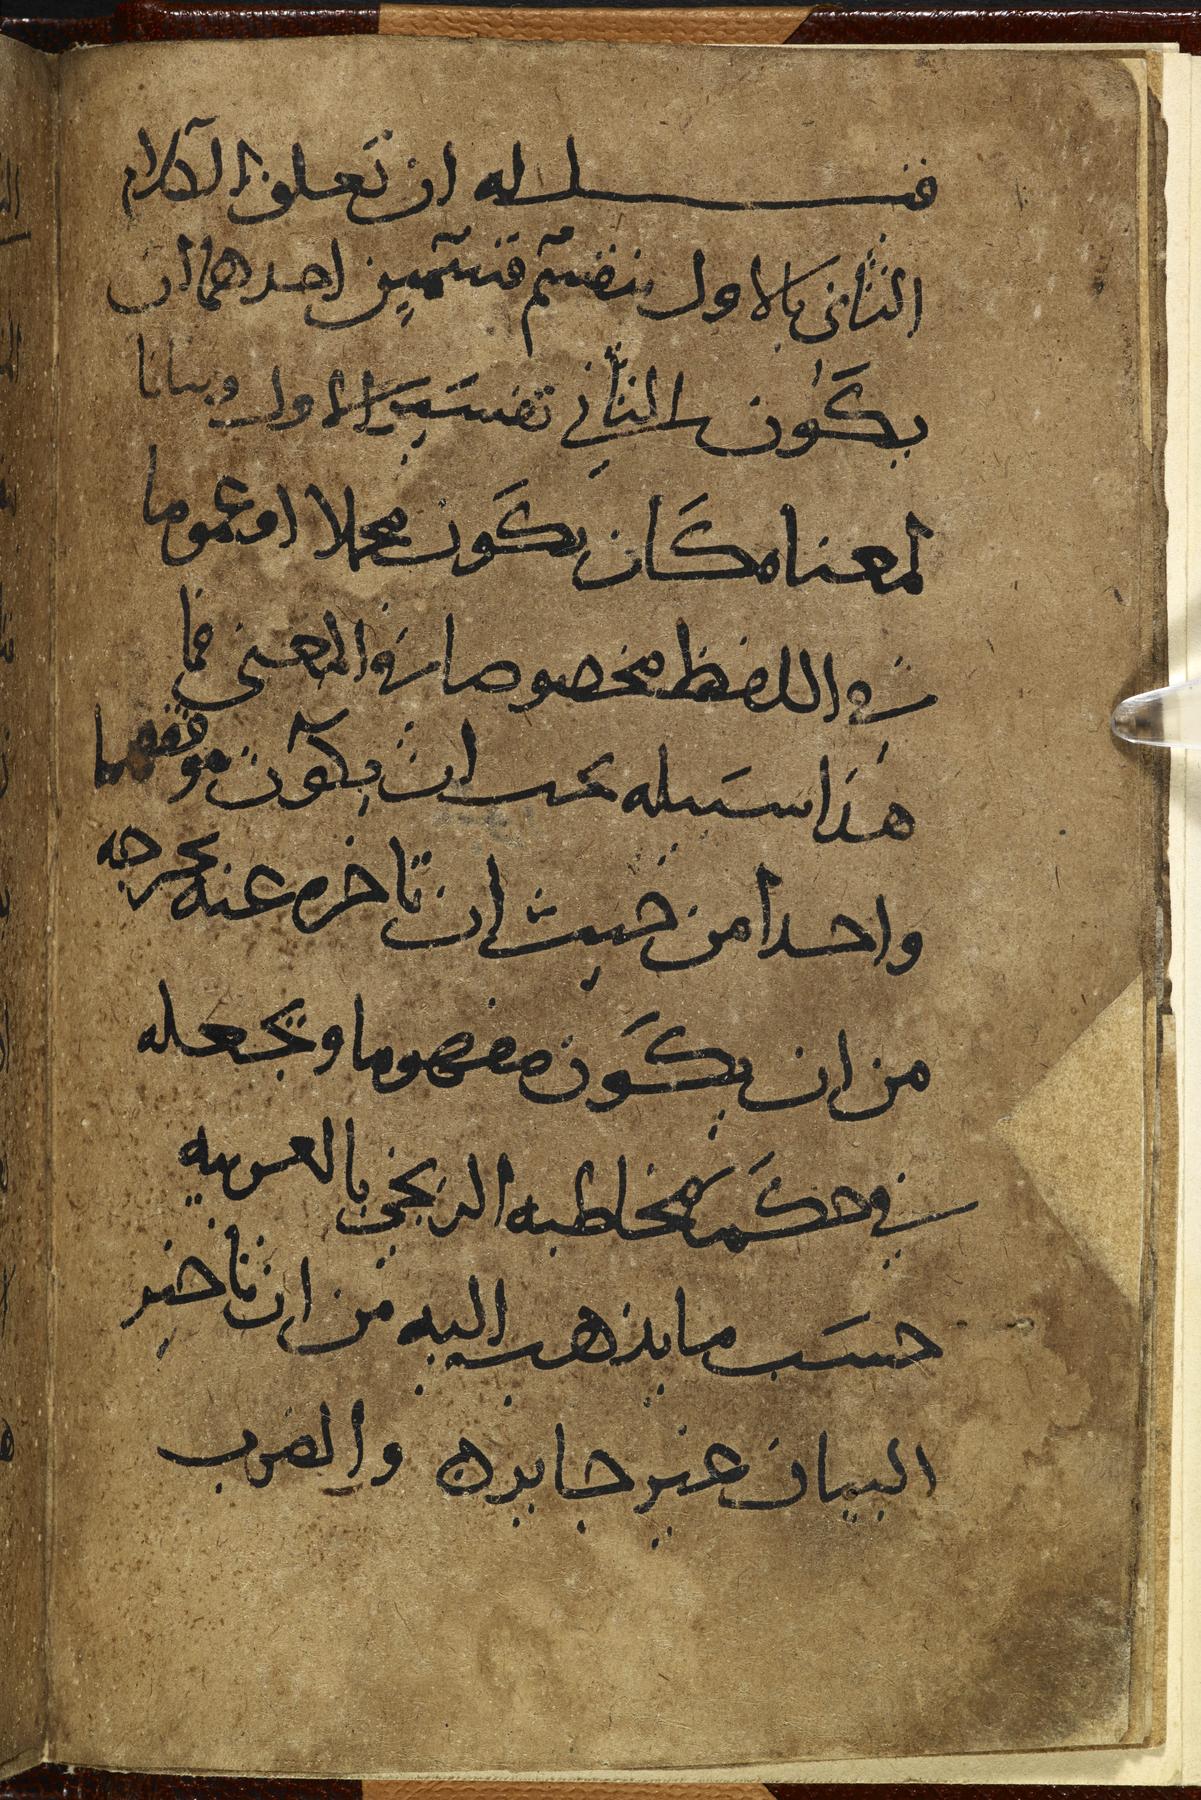 فيـــل له ان تعلق الكلام
الثاني بالاول ينقسم قسمين احدهما ان
يكون الثاني تفسير الاول وبيانا
لمعناه كان يكون مجملا او عموما
في اللفظ مخصوصا في المعنى فما
هذا سبيله يجب ان يكون موقعهما
واحدا من حيث ان تاخره عنه يخرجه
من ان يكون مفهوما ويجعله
في حكم مخاطبه الزنجي بالعربيه
حسب ما يذهب اليه من ان تاخير
البيان غير جايزه والضرب